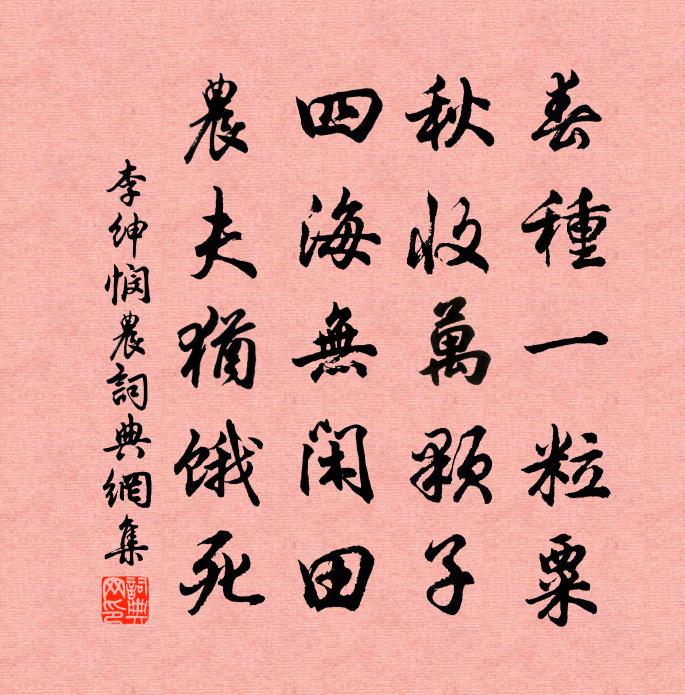 春種一粒粟
秋收萬顆子
四海無閑田
農夫猶餓死
李紳憫農詞典網集
詞典網印